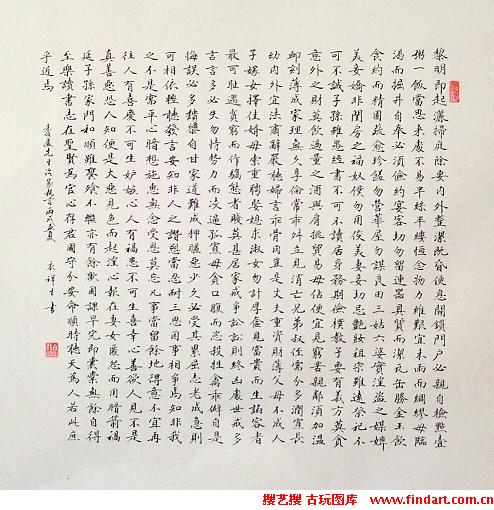 黎明即起灑掃庭除要內外整潔既昏便息關鎖門戶必親自檢點壹
粥一飯當思來處不易半絲半縷恆念物力維艱宜未雨而綢繆毋臨
渴而掘井自奉必須儉約宴客切勿留連器具質而潔瓦缶勝金玉飲
食約而精園蔬愈珍饈勿營華屋勿謀良田三姑六婆實淫盜之媒婢
美妾嬌非閨房之福奴僕勿用俊美妻妾切忌艷妝祖宗雖遠祭祀不
可不誠子孫雖愚經書不可不讀居身務期儉樸教子要有義方莫貪
意外之財莫飲過量之酒與肩挑貿易毋佔便宜見窮苦親鄰須加溫
卹刻薄成家理無久享倫常乖舛立見消亡兄弟叔侄需分多潤寡長
幼內外宜法肅辭嚴聽婦言乖骨肉豈是丈夫重資財薄父母不成人
子嫁女擇佳婿毋索重聘娶媳求淑女勿計厚奩見富貴而生諂容者
最可恥遇貧窮而作驕態者賤莫甚居家戒爭訟訟則終凶處世戒多
言言多必失勿恃勢力而凌逼孤寡毋貪口腹而恣殺牲禽乖僻自是
悔誤必多頹惰自甘家道難成狎暱惡少久必受其累屈志老成急則
可相依輕聽發言安知非人之譖愬當忍耐三思因事相爭焉知非我
之不是需平心暗想施惠無念受恩莫忘凡事當留餘地得意不宜再
往人有喜慶不可生妒嫉心人有禍患不可生喜幸心善欲人見不是
真善惡恐人知便是大惡見色而起淫心報在妻女匿怨而用暗箭禍
延子孫家門和順雖饔飧不繼亦有餘歡國課早完即囊橐無餘自得
至樂讀書志在聖賢為官心存君國守分安命順時聽天為人若此庶
乎近焉
先生治家格言丙戌 祥生書
搜艺搜 古玩图库 www.findart.com.cn